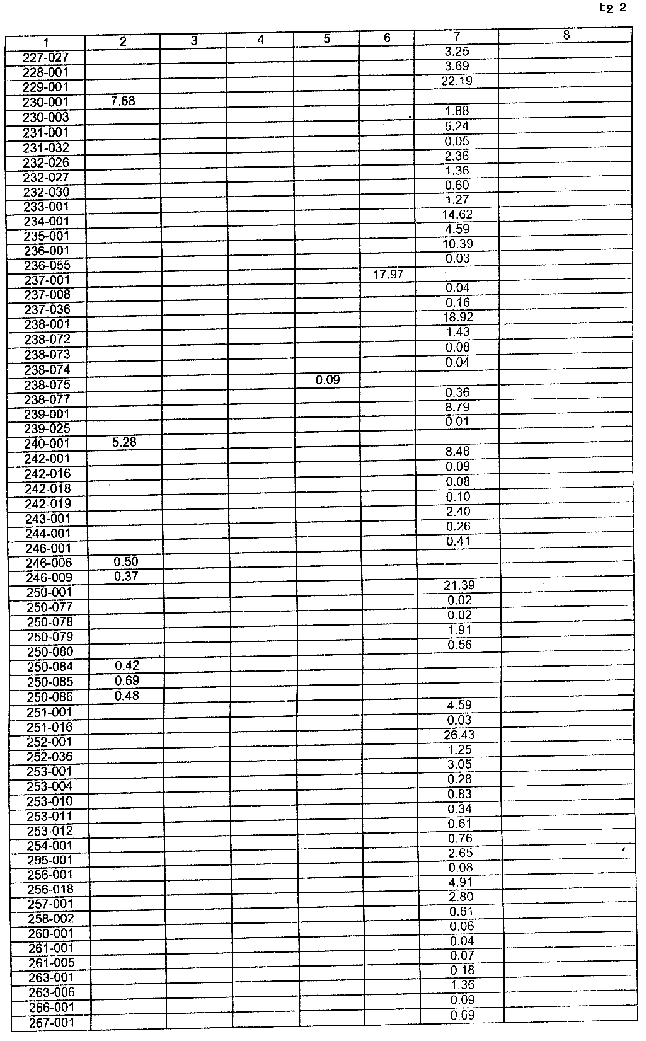 tg 2
1 2 3 4 5 6 7 8
227-027 3.25
228-001 3.69
229-001 22.19
230-001 7.68
230-003 1.88
231-001 5.24
231-032 0.05
232-026 2.36
232-027 1.36
232-030 0.60
233-001 1.27
234-001 14.62
235-001 4.59
236-001 10.39
236-055 0.03
237-001 17.97
237-008 0.04
237-036 0.16
238-001 18.92
238-072 1.43
238-073 0.08
238-074 0.04
238-075 0.09
238-077 0.36
239-001 8.79
239-025 0.01
240-001 5.28
242-001 8.48
242-016 0.09
242-018 0.08
242-019 0.10
243-001 2.40
244-001 0.26
246-001 0.41
246-006 0.50
246-009 0.37
250-001 21.39
250-077 0.02
250-078 0.02
250-079 1.91
250-080 0.56
250-084 0.42
250-085 0.69
250-086 0.48
251-001 4.59
251-016 0.03
252-001 26.43
252-036 1.25
253-001 3.05
253-004 0.28
253-010 0.83
253-011 0.34
253-012 0.61
254-001 0.76
255-001 2.65
256-001 0.08
256-018 4.91
257-001 2.80
258-002 0.61
260-001 0.06
261-001 0.04
261-005 0.07
263-001 0.18
263-006 1.36
266-001 0.09
267-001 0.09